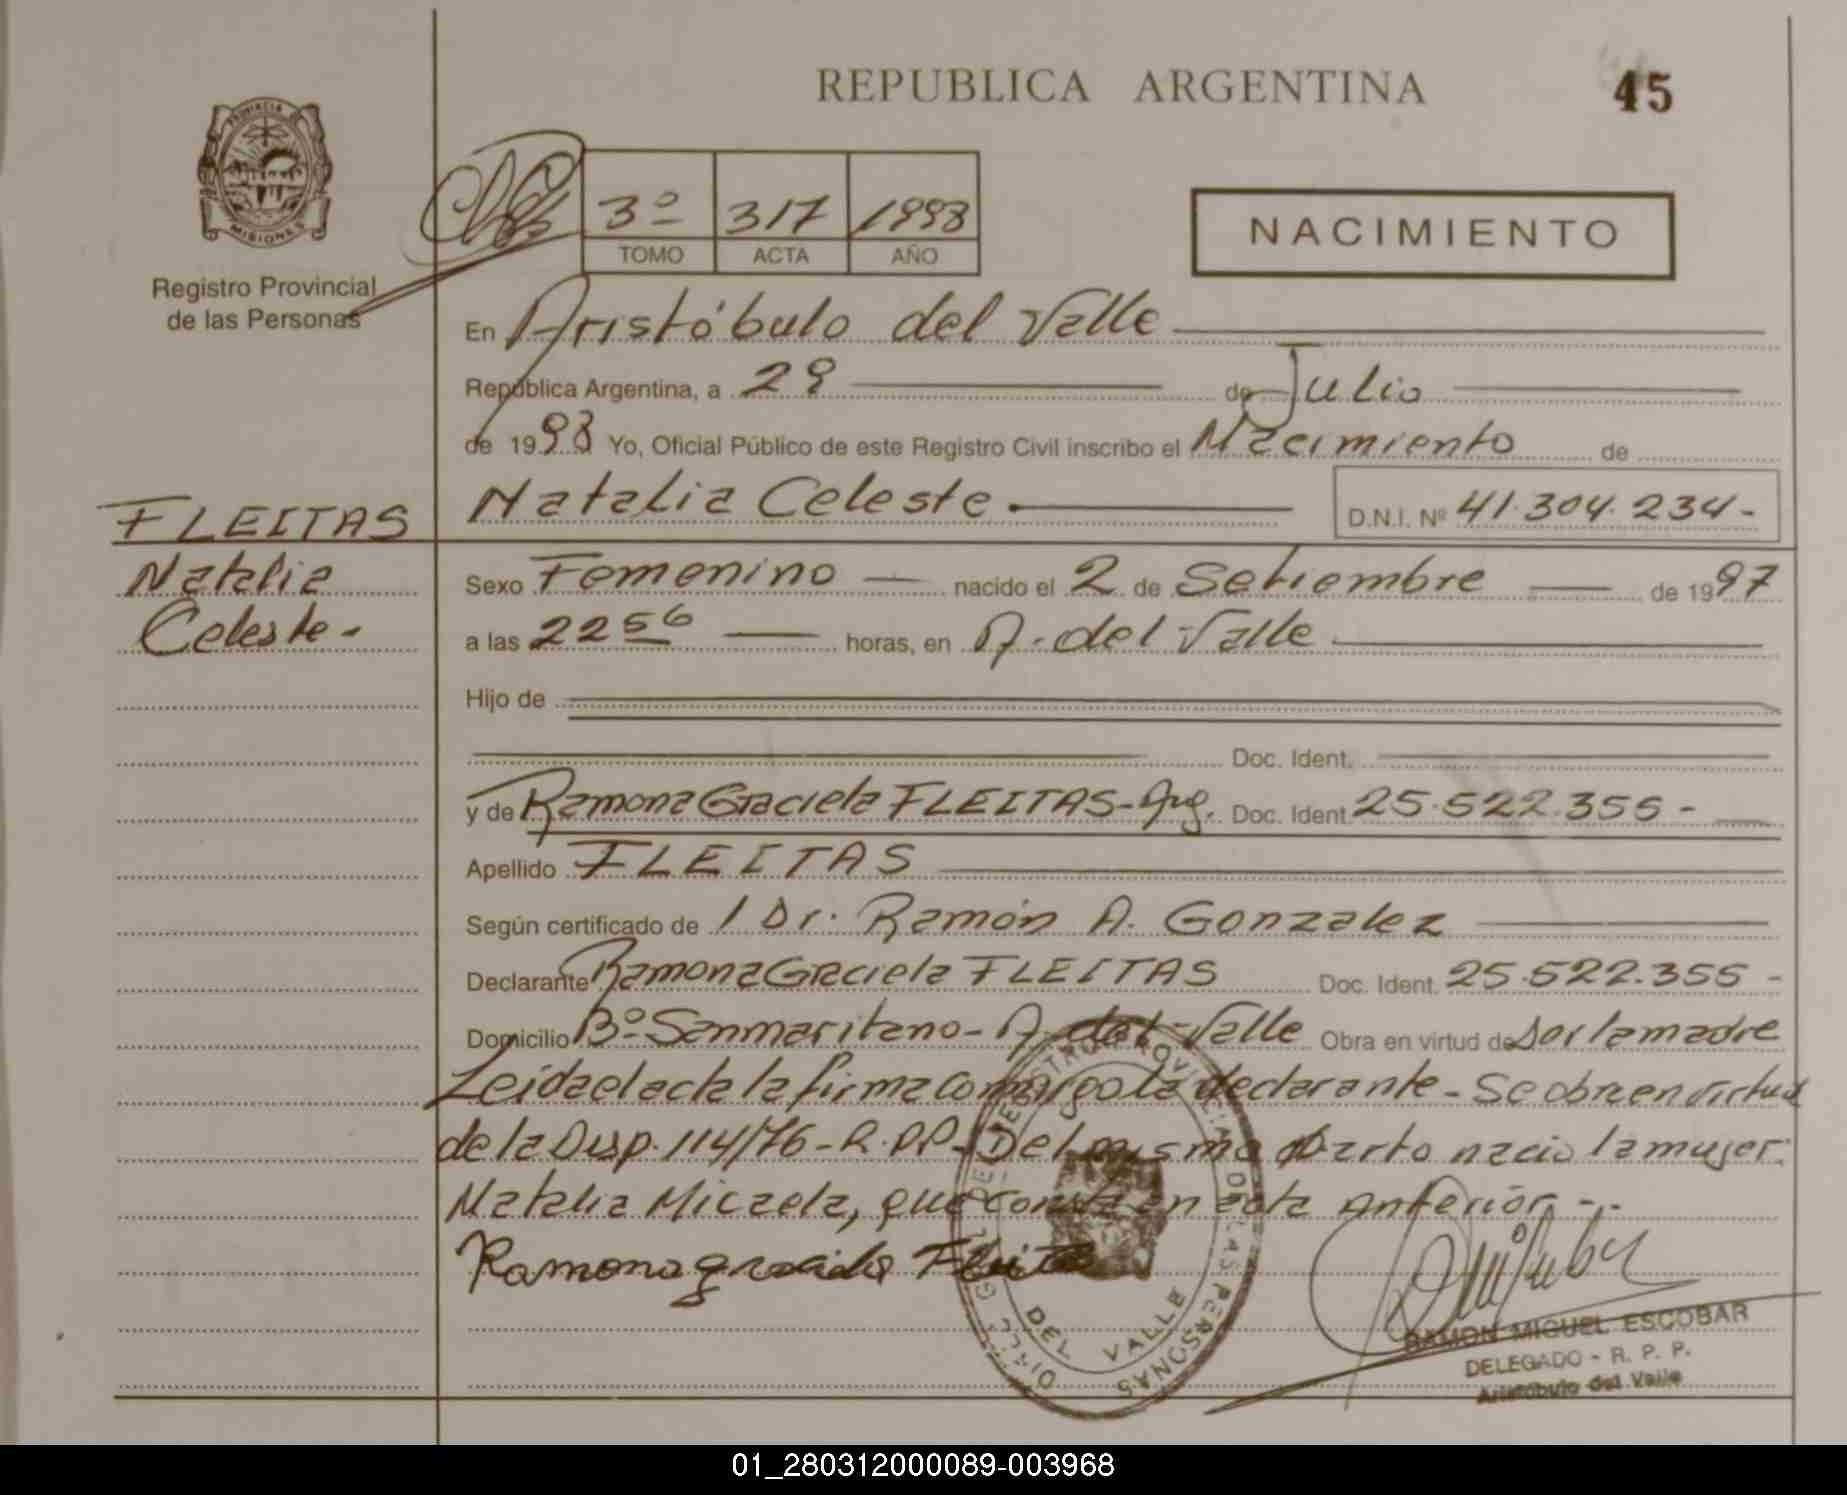 REPUBLICA ARGENTINA
45
PROVINCIA DE
MISIONES
Registro Provincial
de las Personas
3º 317 1998
TOMO ACTA AÑO
NACIMIENTO
En Aristóbulo del Valle
República Argentina, a 29 de Julio
de 1998 Yo, Oficial Público de este Registro Civil inscribo el Nacimiento de
Natalia Celeste.
D.N.I. Nº 41.304.234-
FLEITAS
Natalia
Celeste-
Sexo Femenino nacido el 2 de Setiembre de 1997
a las 22 56 horas, en A. del Valle
Hijo de
Doc. Ident.
y de Ramona Graciela FLEITAS-Arg. Doc. Ident. 25.522.355-
Apellido FLEITAS
Según certificado de / Dr. Ramón A. Gonzalez
Declarante Ramona Graciela FLEITAS Doc. Ident. 25.522.355-
Domicilio Bº Sanmaritano- A. del Valle Obra en virtud de Ser la madre
Leida el acta la firma conmigo la declarante- Se obra en virtud
de la Disp. 114/76-R.P.P- Del mismo parto nacio la mujer:
Natalia Micaela, que consta en acta anterior--
Ramona graciela Fleita
DIR. GRAL. DEL REGISTRO PROVINCIAL DE LAS PERSONAS
DEL VALLE
RAMON MIGUEL ESCOBAR
DELEGADO - R. P. P.
Aristóbulo del Valle
01_280312000089-003968